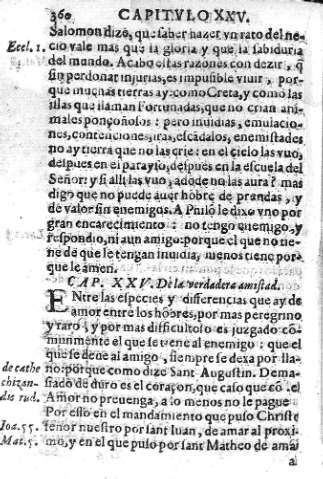 360 CAPITVLO XXV.
Salomon dize, que saber hazer vn rato del ne-
Eccl. 1. cio vale mas que la gloria y que la sabiduria
del mundo. Acabo estas razones con dezir, q̃
sin perdonar injurias, es impusible viuir, por-
que muchas tierras ay: como Creta, y como las
islas que llaman Fortunadas, que no crian ani-
males ponçoñosos: pero inuidias, emulacio-
nes, contenciones, iras, escãdalos, enemistades
no ay tierra que no las crie: en el cielo las vuo,
despues en el parayso, despues en la escuela del
Señor: y si alli las vuo, adõde no las aura? mas
digo que no puede auer hõbre de prendas, y
de valor sin enemigos. A Philõ le dixo vno por
gran encarecimiento: no tengo enemigo, y
respondio, ni aun amigo: porque el que no tie-
ne de que le tengan inuidia, menos tiene por-
que le amen.
CAP. XXV. De la verdadera amistad.
ENtre las especies y differencias que ay de
amor entre los hõbres, por mas peregrino
y raro, y por mas difficultoso es juzgado co-
munmente el que se tiene al enemigo: que el
que se deue al amigo, siempre se dexa por lla-
de cathe no: porque como dize Sant Augustin. Dema-
chizan- siado de duro es el coraçon, que caso que cõ el
dis rud. Amor no preuenga, a lo menos no le pague
Por esso en el mandamiento que puso Christo
Ioa. 55. señor nuestro por sant Iuan, de amar al proxi-
Mat. 5. mo, y en el que puso por sant Matheo de amar
a